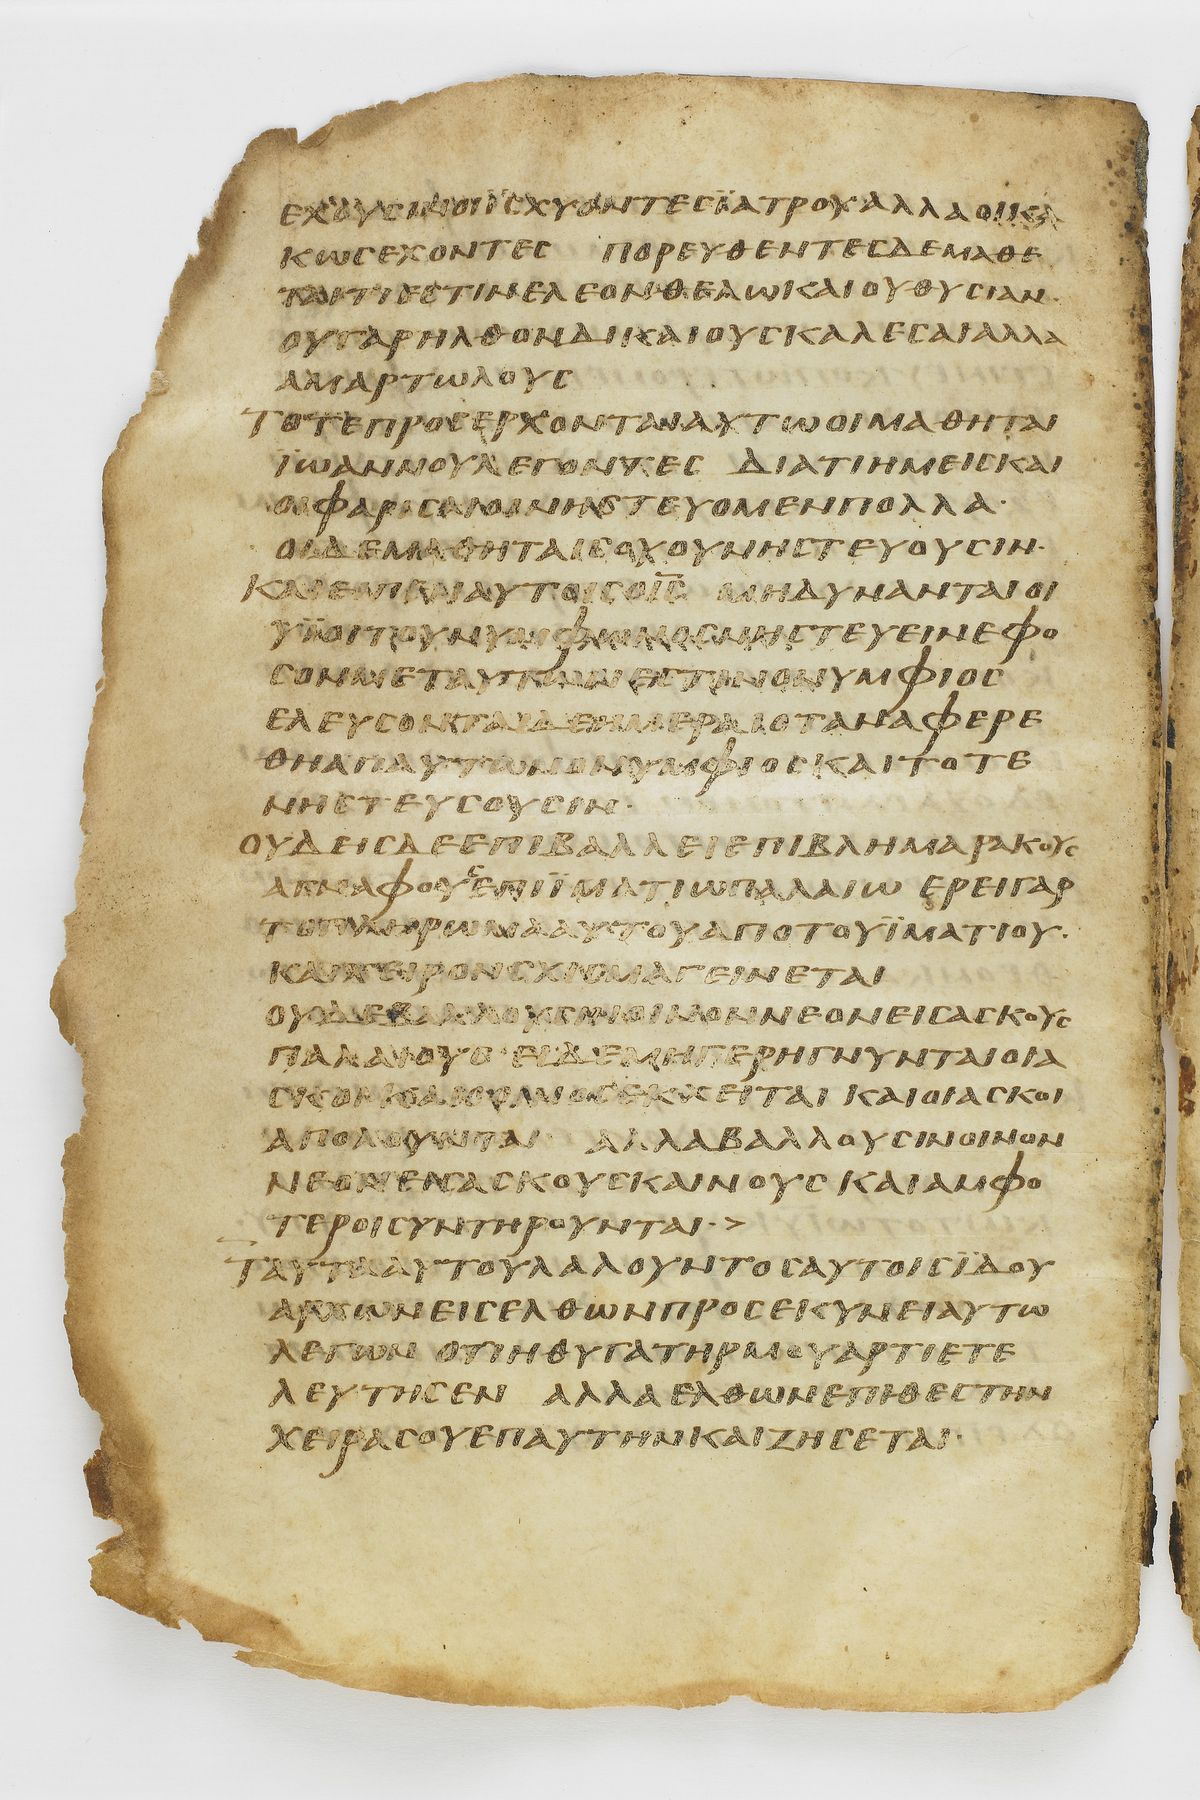 ΕΧΟΥϹΙΝΟΙΪϹΧΥΟΝΤΕϹΪΑΤΡΟΥ·ΑΛΛΑΟΙΚΑ
ΚΩϹΕΧΟΝΤΕϹ ΠΟΡΕΥΘΕΝΤΕϹΔΕΜΑΘΕ
ΤΑΙΤΙΕϹΤΙΝΕΛΕΟΝΘΕΛΩΚΑΙΟΥΘΥϹΙΑΝ·
ΟΥΓΑΡΗΛΘΟΝΔΙΚΑΙΟΥϹΚΑΛΕϹΑΙΑΛΛΑ
ΑΜΑΡΤΩΛΟΥϹ
ΤΟΤΕΠΡΟϹΕΡΧΟΝΤΑΙΑΥΤΩΟΙΜΑΘΗΤΑΙ
ΪΩΑΝΝΟΥΛΕΓΟΝΤΕϹ ΔΙΑΤΙΗΜΕΙϹΚΑΙ
ΟΙΦΑΡΙϹΑΙΟΙΝΗϹΤΕΥΟΜΕΝΠΟΛΛΑ·
ΟΙΔΕΜΑΘΗΤΑΙϹΟΥΟΥΝΗϹΤΕΥΟΥϹΙΝ·
ΚΑΙΕΙΠΕΝΑΥΤΟΙϹΟΙ̅Ϲ̅ ΜΗΔΥΝΑΝΤΑΙΟΙ
ΥΪΟΙΤΟΥΝΥΜΦΩΝΟϹΝΗϹΤΕΥΕΙΝΕΦΟ
ϹΟΝΜΕΤΑΥΤΩΝΕϹΤΙΝΟΝΥΜΦΙΟϹ
ΕΛΕΥϹΟΝΤΑΙΔΕΗΜΕΡΑΙΟΤΑΝΑΦΕΡΕ
ΘΗΑΠΑΥΤΩΝΟΝΥΜΦΙΟϹΚΑΙΤΟΤΕ
ΝΗϹΤΕΥϹΟΥϹΙΝ·
ΟΥΔΕΙϹΔΕΕΠΙΒΑΛΛΕΙΕΠΙΒΛΗΜΑΡΑΚΟΥϹ
ΑΓΝΑΦΟΥϹΕΠΙΪΜΑΤΙΩΠΑΛΑΙΩ ΕΡΕΙΓΑΡ
ΤΟΠΛΗΡΩΜΑΑΥΤΟΥΑΠΟΤΟΥΪΜΑΤΙΟΥ·
ΚΑΙΧΕΙΡΟΝϹΧΙϹΜΑΓΕΙΝΕΤΑΙ
ΟΥΔΕΒΑΛΛΟΥϹΙΝΟΙΝΟΝΝΕΟΝΕΙϹΑϹΚΟΥϹ
ΠΑΛΑΙΟΥϹ· ΕΙΔΕΜΗΓΕΡΗΓΝΥΝΤΑΙΟΙΑ
ϹΚΟΙΚΑΙΟΟΙΝΟϹΕΚΧΕΙΤΑΙ ΚΑΙΟΙΑϹΚΟΙ
ΑΠΟΛΟΥΝΤΑΙ ΑΛΛΑΒΑΛΛΟΥϹΙΝΟΙΝΟΝ
ΝΕΟΝΕΙϹΑϹΚΟΥϹΚΑΙΝΟΥϹ ΚΑΙΑΜΦΟ
ΤΕΡΟΙϹΥΝΤΗΡΟΥΝΤΑΙ·>
ΤΑΥΤΑΑΥΤΟΥΛΑΛΟΥΝΤΟϹΑΥΤΟΙϹΪΔΟΥ
ΑΡΧΩΝΕΙϹΕΛΘΩΝΠΡΟϹΕΚΥΝΕΙΑΥΤΩ
ΛΕΓΩΝ ΟΤΙΗΘΥΓΑΤΗΡΜΟΥΑΡΤΙΕΤΕ
ΛΕΥΤΗϹΕΝ ΑΛΛΑΕΛΘΩΝΕΠΙΘΕϹΤΗΝ
ΧΕΙΡΑϹΟΥΕΠΑΥΤΗΝΚΑΙΖΗϹΕΤΑΙ·